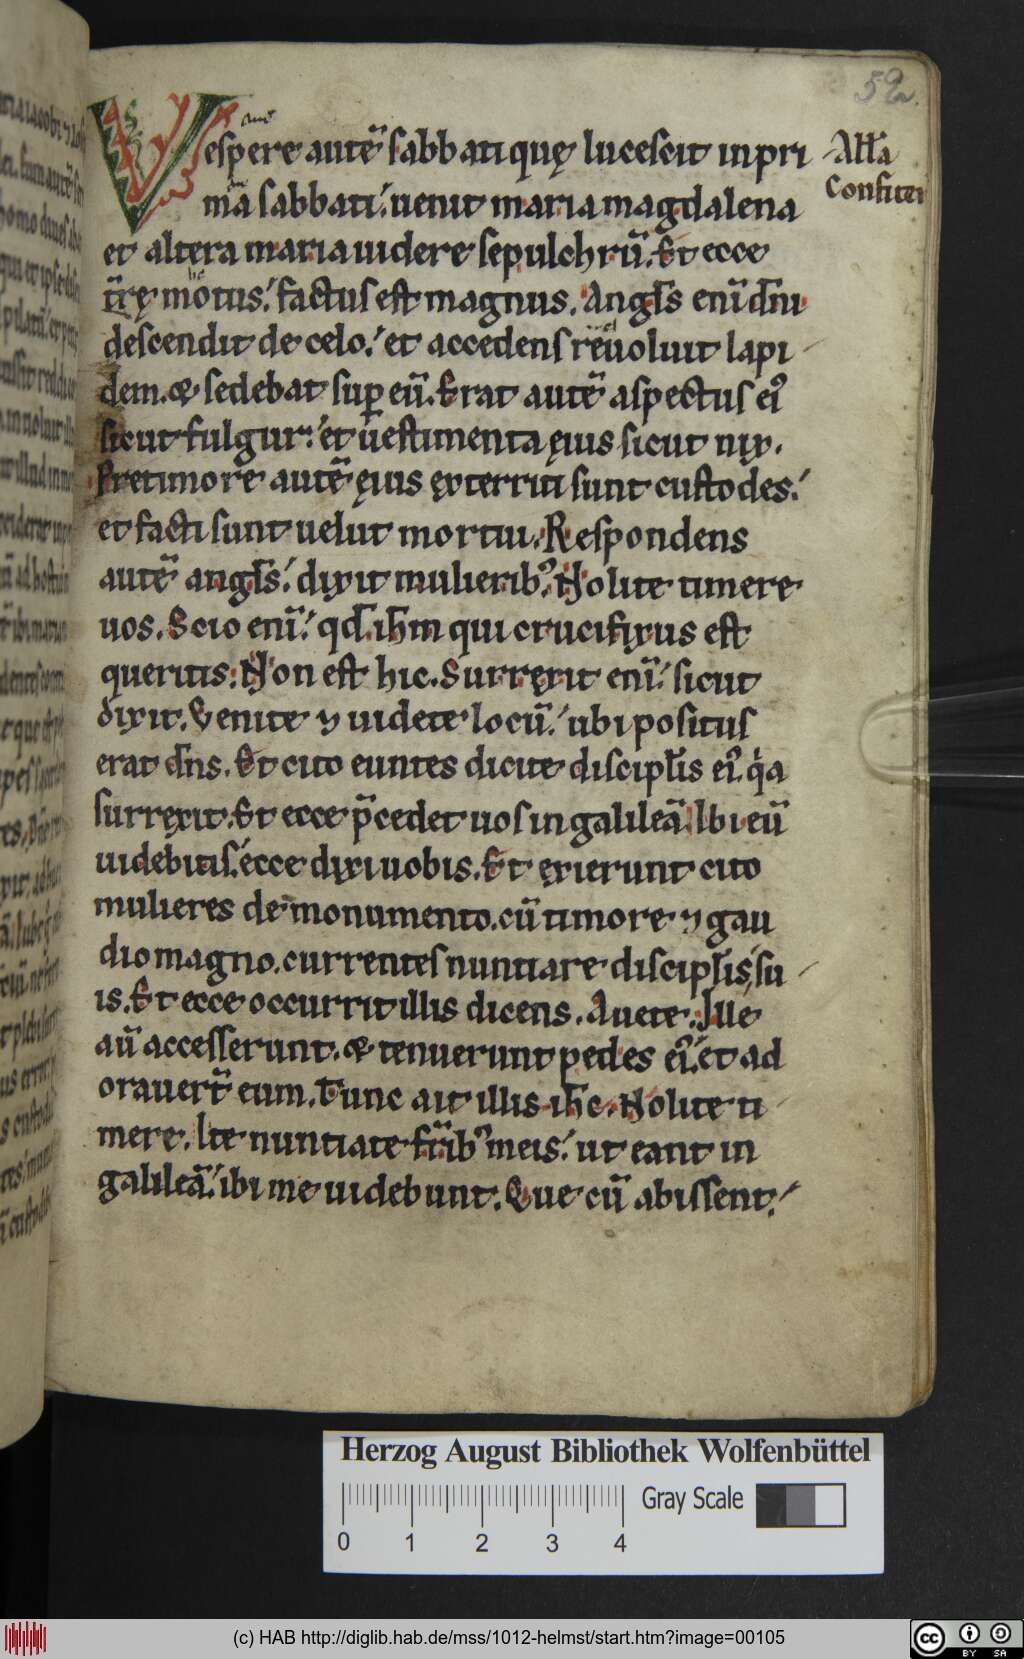 52.
Vespere autē sabbati quę lucescit inpri
mā sabbati. uenit maria magdalena
et altera maria uidere sepulchrū. Et ecce
tr̄ę motus. factus est magnus. Angls̄ enī dn̄i
descendit de celo. et accedens reuoluit lapi
dem. & sedebat sup eū. Erat autē aspectus ei᾽
sicut fulgur. et uestimenta ęius sicut nix.
Pretimore autē ęius exterriti sunt custodes.
et facti sunt uelut mortui. Respondens
autē angls̄. dixit mulierib᾽. Nolite timere
uos. Scio enī. qd̄ ihm̄ qui crucifixus est
queritis. Non est hic. Surręxit enī. sicut
dixit. Venite ⁊ uidete locū. ubi positus
erat dn̄s. Et cito euntes dicite discipl̄is ei᾽. qa
surręxit. Et ecce p̄cedet uos in galileā. Ibi eū
uidebitis. ecce dixi uobis. Et ęxierunt cito
mulieres de monumento. cū timore ⁊ gau
dio magno. currentes nuntiare discipl̄is su
is. Et ecce occurrit illis dicens. Auete. Ille
aū accesserunt. & tenuerunt pedes ei᾽. et ad
orauert̄ eum. Tunc ait illis ihc̄. Nolite ti
mere. Ite nuntiate fr̄ib᾽ meis. ut eant in
galileā. ibi me uidebunt. Que cū abissent.
All̄a
Confitei
Herzog August Bibliothek Wolfenbüttel
Gray Scale
0 1 2 3 4
(c) HAB http://diglib.hab.de/mss/1012-helmst/start.htm?image=00105
cc BY SA